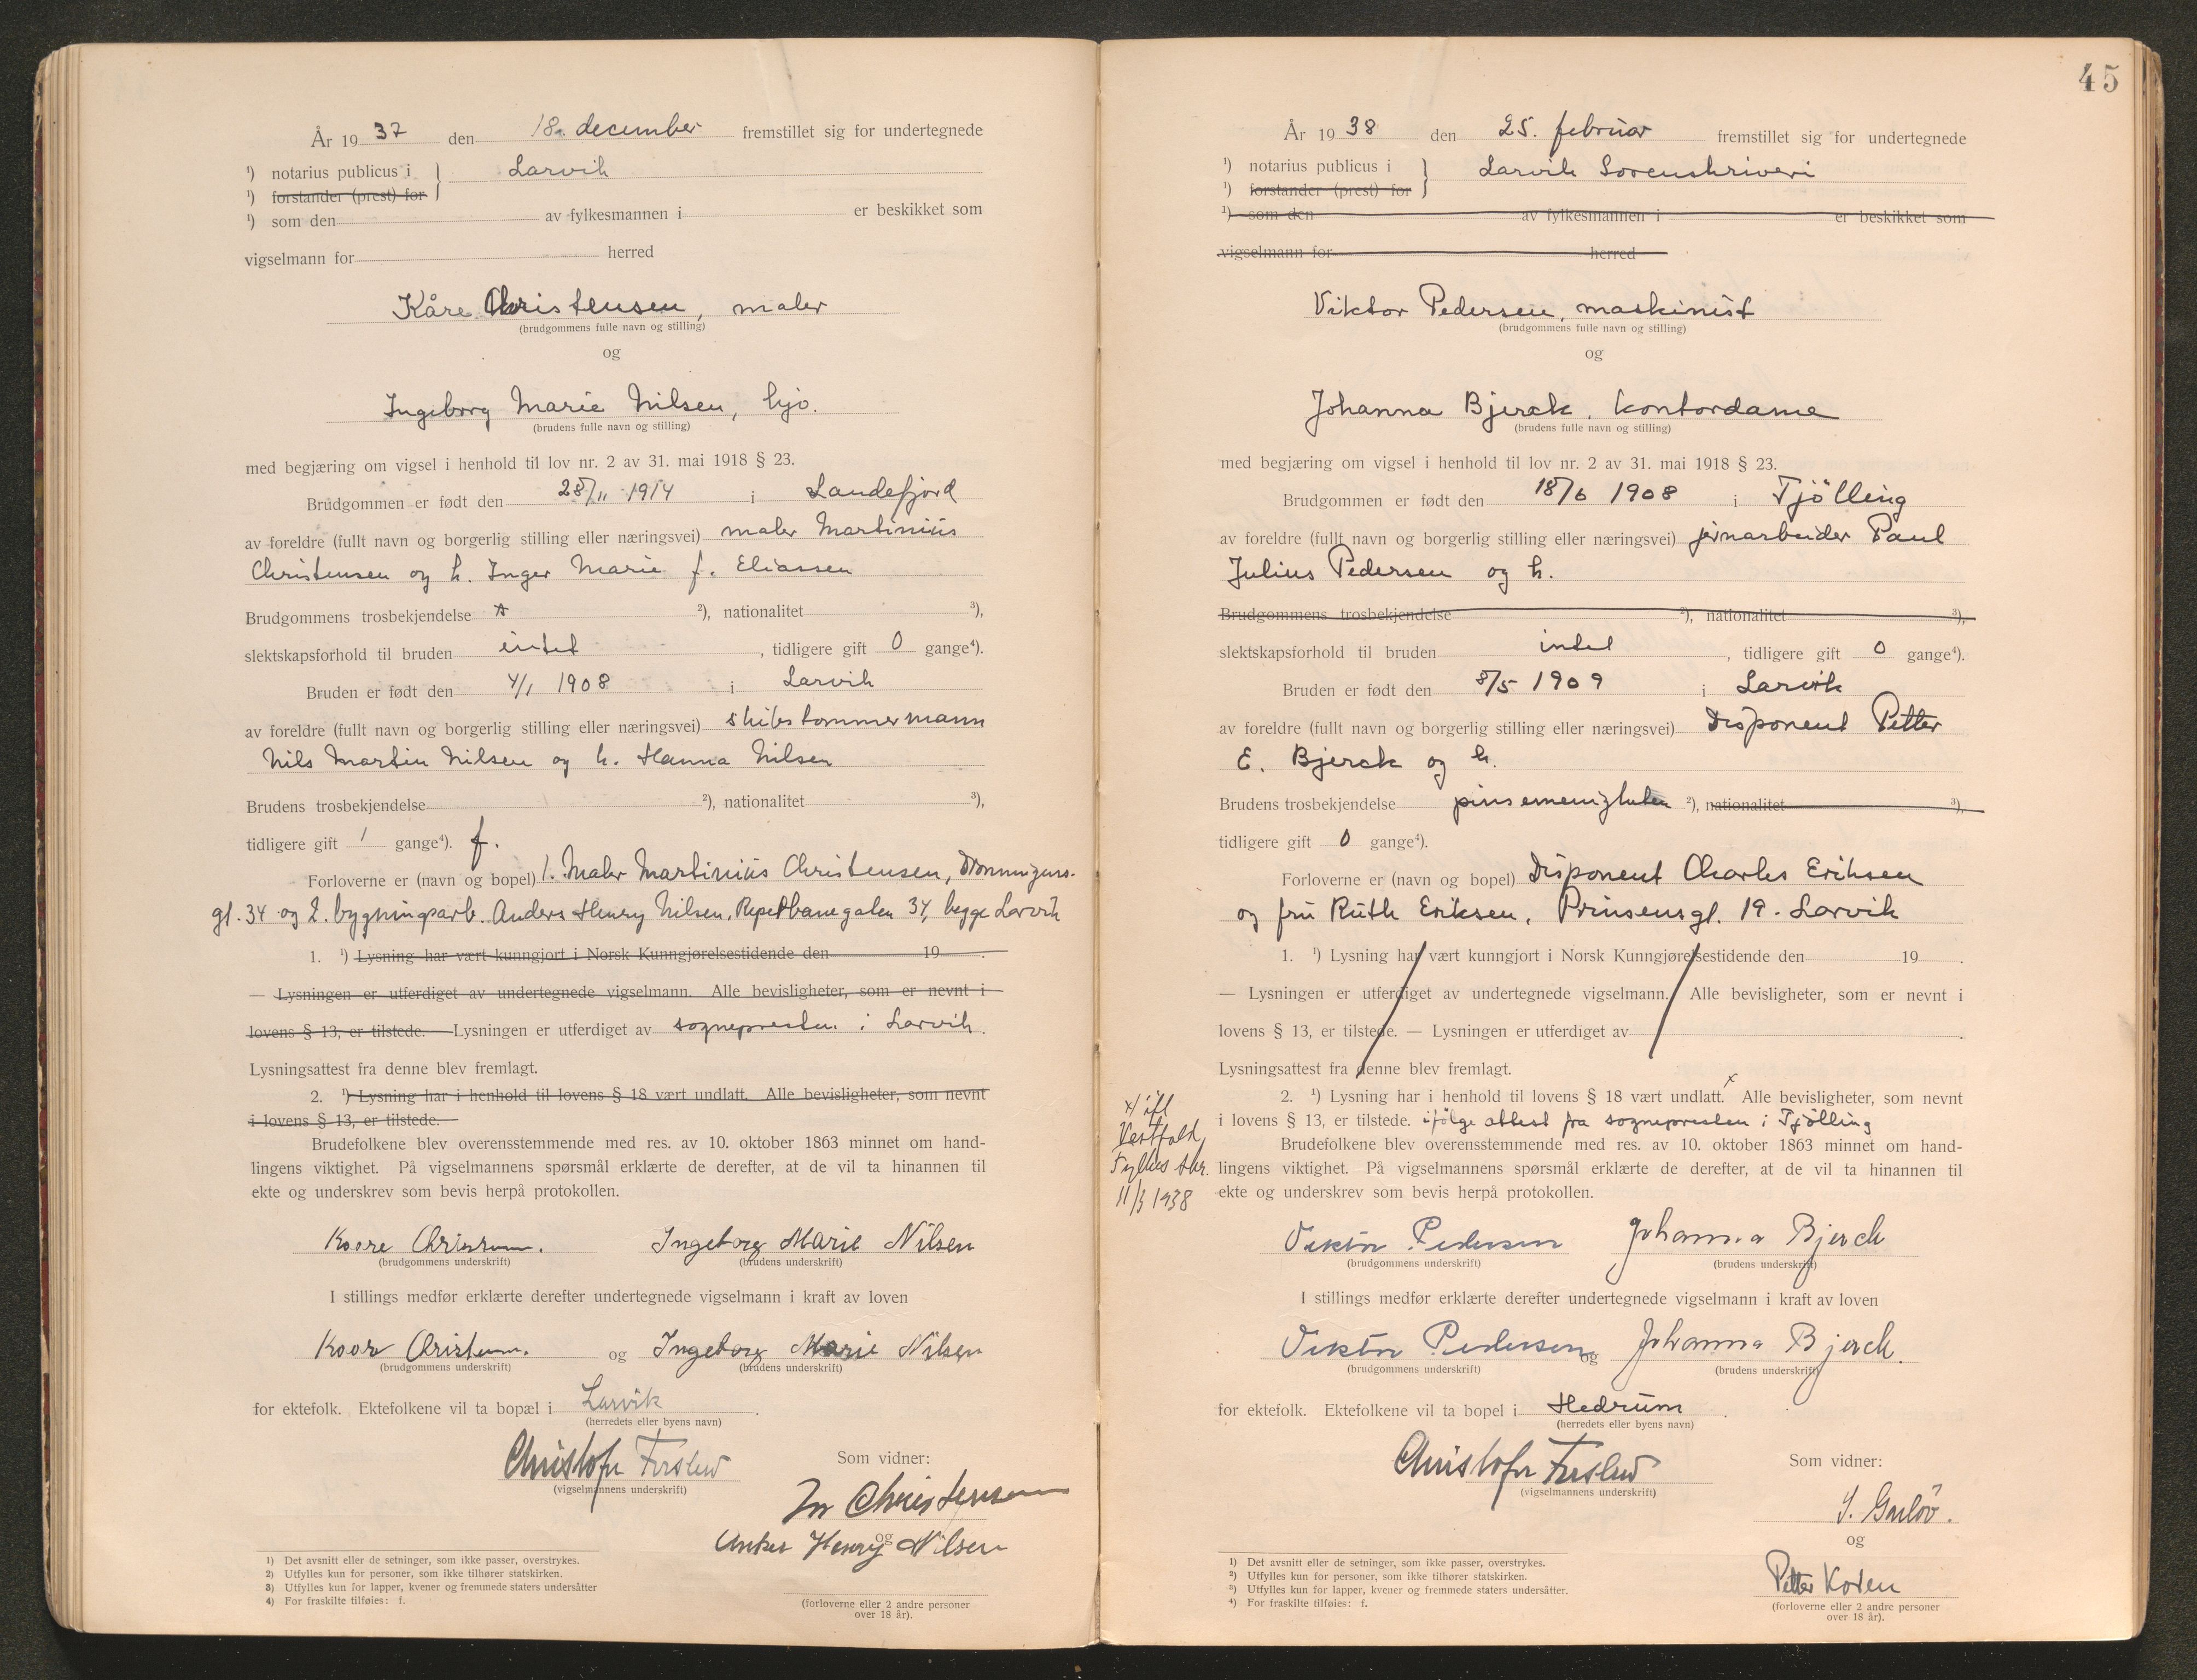 År 19 37 den 18. december fremstillet sig for undertegnede
¹) notarius publicus i } Larvik
¹) forstander (prest) for
¹) som den av fylkesmannen i er beskikket som
vigselmann for herred
Kåre Christensen, maler
(brudgommens fulle navn og stilling)
og
Ingeborg Marie Nilsen, hjo.
(brudens fulle navn og stilling)
med begjæring om vigsel i henhold til lov nr. 2 av 31. mai 1918 § 23.
Brudgommen er født den 28/11 1914 i Sandefjord
av foreldre (fullt navn og borgerlig stilling eller næringsvei) maler Martinius
Christensen og h. Inger Marie f. Eliassen
Brudgommens trosbekjendelse ²), nationalitet ³),
slektskapsforhold til bruden intet , tidligere gift 0 gange⁴).
Bruden er født den 4/1 1908 i Larvik
av foreldre (fullt navn og borgerlig stilling eller næringsvei) skibstømmermann
Nils Martin Nilsen og h. Hanna Nilsen
Brudens trosbekjendelse ²), nationalitet ³),
tidligere gift 1 gange⁴). f.
Forloverne er (navn og bopel) 1. Maler Martinius Christensen, Dronningens-
gt. 34 og 2. bygningsarb. Anders Henry Nilsen, Reperbanegaten 34, begge Larvik
1. ¹) Lysning har vært kunngjort i Norsk Kunngjørelsestidende den 19 .
— Lysningen er utferdiget av undertegnede vigselmann. Alle bevisligheter, som er nevnt i
lovens § 13, er tilstede. — Lysningen er utferdiget av sognepresten i Larvik.
Lysningsattest fra denne blev fremlagt.
2. ¹) Lysning har i henhold til lovens § 18 vært undlatt. Alle bevisligheter, som nevnt
i lovens § 13, er tilstede.
Brudefolkene blev overensstemmende med res. av 10. oktober 1863 minnet om hand-
lingens viktighet. På vigselmannens spørsmål erklærte de derefter, at de vil ta hinannen til
ekte og underskrev som bevis herpå protokollen.
Koore Christensen. Ingeborg Marie Nilsen
(brudgommens underskrift) (brudens underskrift)
I stillings medfør erklærte derefter undertegnede vigselmann i kraft av loven
Koore Christensen. og Ingeborg Marie Nilsen
(brudgommens underskrift) (brudens underskrift)
for ektefolk. Ektefolkene vil ta bopæl i Larvik .
(herredets eller byens navn)
Christofer Førslew Som vidner:
(vigselmannens underskrift)
M Christensen
og
Anders Henry Nilsen
1) Det avsnitt eller de setninger, som ikke passer, overstrykes.
2) Utfylles kun for personer, som ikke tilhører statskirken.
3) Utfylles kun for lapper, kvener og fremmede staters undersåtter
4) For fraskilte tilføies: f.
(forloverne eller 2 andre personer
over 18 år).
45
År 19 38 den 25. februar fremstillet sig for undertegnede
¹) notarius publicus i } Larvik Sorenskriveri
¹) forstander (prest) for
¹) som den av fylkesmannen i er beskikket som
vigselmann for herred
Viktor Pedersen, maskinist
(brudgommens fulle navn og stilling)
og
Johanna Bjerck, kontordame
(brudens fulle navn og stilling)
med begjæring om vigsel i henhold til lov nr. 2 av 31. mai 1918 § 23.
Brudgommen er født den 18/6 1908 i Tjølling
av foreldre (fullt navn og borgerlig stilling eller næringsvei) jernarbeider Paul
Julius Pedersen og h.
Brudgommens trosbekjendelse ²), nationalitet ³),
slektskapsforhold til bruden intet , tidligere gift 0 gange⁴).
Bruden er født den 8/5 1909 i Larvik
av foreldre (fullt navn og borgerlig stilling eller næringsvei) Disponent Petter
E. Bjerck og h.
Brudens trosbekjendelse pinsemenigheten ²), nationalitet ³),
tidligere gift 0 gange⁴).
Forloverne er (navn og bopel) Disponent Charles Eriksen
og fru Ruth Eriksen, Prinsensgt. 19. Larvik
1. ¹) Lysning har vært kunngjort i Norsk Kunngjørelsestidende den 19 .
— Lysningen er utferdiget av undertegnede vigselmann. Alle bevisligheter, som er nevnt i
lovens § 13, er tilstede. — Lysningen er utferdiget av .
Lysningsattest fra denne blev fremlagt.
2. ¹) Lysning har i henhold til lovens § 18 vært undlatt. x Alle bevisligheter, som nevnt
i lovens § 13, er tilstede. ifølge attest fra sognepresten i Tjølling
x/ ifl
Vestfold
Fylkes skr.
11/3 1938
Brudefolkene blev overensstemmende med res. av 10. oktober 1863 minnet om hand-
lingens viktighet. På vigselmannens spørsmål erklærte de derefter, at de vil ta hinannen til
ekte og underskrev som bevis herpå protokollen.
Viktor Pedersen Johanna Bjerck
(brudgommens underskrift) (brudens underskrift)
I stillings medfør erklærte derefter undertegnede vigselmann i kraft av loven
Viktor Pedersen og Johanna Bjerck.
(brudgommens underskrift) (brudens underskrift)
for ektefolk. Ektefolkene vil ta bopel i Hedrum .
(herredets eller byens navn)
Christofer Førslew Som vidner:
(vigselmannens underskrift)
og
Petter
1) Det avsnitt eller de setninger, som ikke passer, overstrykes.
²) Utfylles kun for personer, som ikke tilhører statskirken.
³) Utfylles kun for lapper, kvener og fremmede staters undersåtter.
⁴) For fraskilte tilføies: f.
(forloverne eller 2 andre personer
over 18 år).